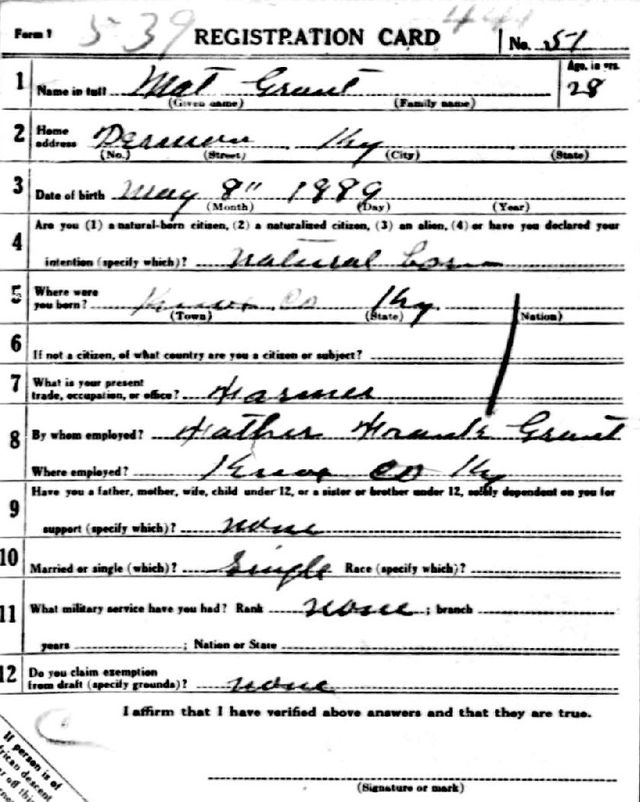 Form 1 539 REGISTRATION CARD 444 No. 51
1 Name in full Mat Grant Age, in yrs. 28
(Given name) (Family name)
2 Home address Ky
(No.) (Street) (City) (State)
3 Date of birth May 8" 1889
(Month) (Day) (Year)
4 Are you (1) a natural-born citizen, (2) a naturalized citizen, (3) an alien, (4) or have you declared your
intention (specify which)? Natural born
5 Where were you born? Knox Co Ky
(Town) (State) (Nation)
6 If not a citizen, of what country are you a citizen or subject?
7 What is your present trade, occupation, or office? Farmer
8 By whom employed? Father Frank Grant
Where employed? Knox Co Ky
9 Have you a father, mother, wife, child under 12, or a sister or brother under 12, solely dependent on you for
support (specify which)? none
10 Married or single (which)? Single Race (specify which)?
11 What military service have you had? Rank none ; branch
years ; Nation or State
12 Do you claim exemption from draft (specify grounds)? none
I affirm that I have verified above answers and that they are true.
(Signature or mark)
If person is of
African descent
off this